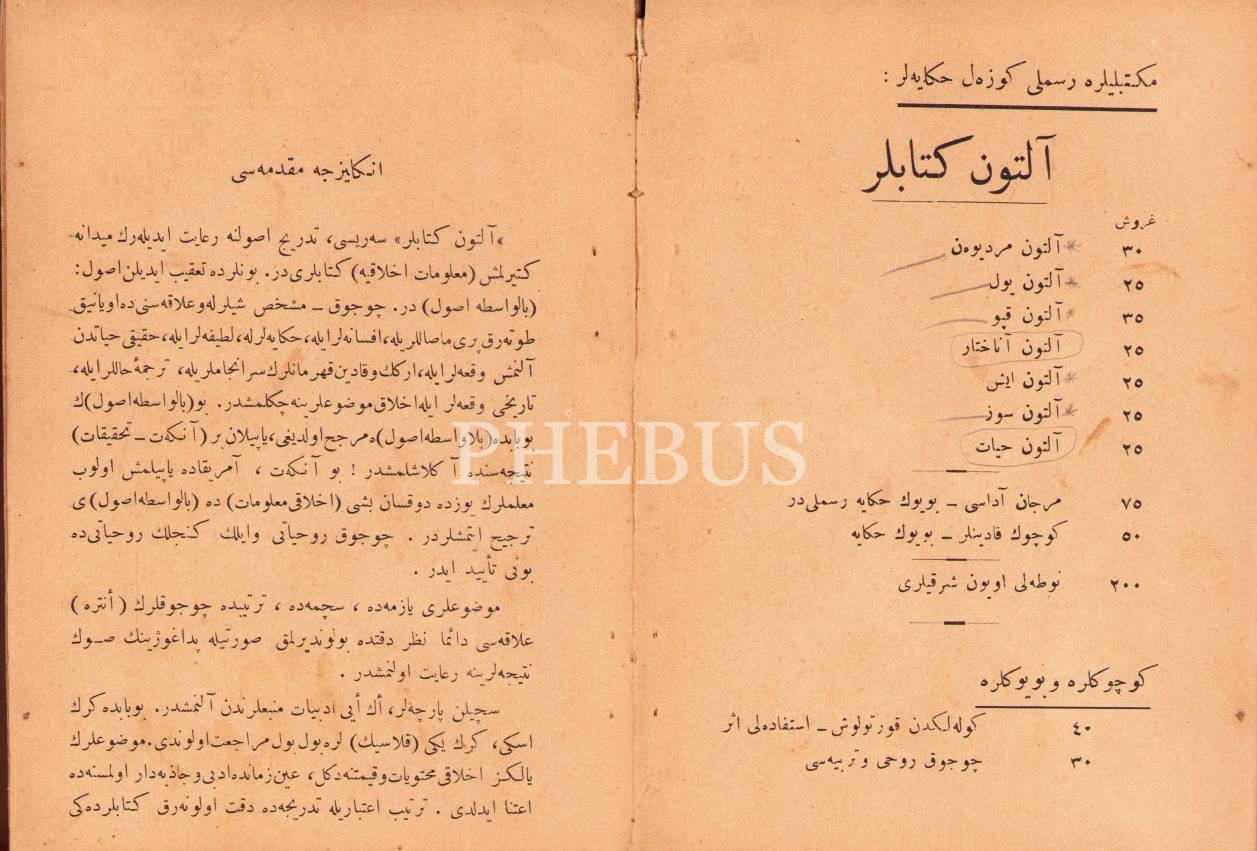 مكتبليلره رسملی كوزەل حكايەلر :
آلتون كتابلر
غروش
آلتون مرديوەن ٣٠
آلتون يول ٢٥
آلتون قپو ٣٥
آلتون آناختار ٢٥
آلتون ايش ٢٥
آلتون سوز ٢٥
آلتون حيات ٢٥
مرجان آداسی ــ بويوك حكايه رسملی در ٧٥
كوچوك قادينلر ــ بويوك حكايه ٥٠
نوطەلی اويون شرقيلری ٢٠٠
كوچوكلره و بويوكلره
كولەلكدن قورتولوش ــ استفادەلی اثر ٤٠
چوجوق روحی و تربيەسی ٣٠
انكليزجه مقدمەسی
«آلتون كتابلر» سەريسی، تدريج اصولنه رعايت ايديلەرك ميدانه
كتيرلمش (معلومات اخلاقيه) كتابلری در. بونلرده تعقيب ايديلن اصول:
(بالواسطه اصول) در. چوجوق ــ مشخص شيلرله و علاقەسنی ده اويانيق
طوتەرق پری ماصاللريله، افسانەلر ايله، حكايەلرله، لطيفەلر ايله، حقيقی حياتدن
آلنمش وقعەلر ايله، اركك و قادين قهرمانلرك سرانجاملريله، ترجمۀ حاللر ايله،
تاريخی وقعەلر ايله اخلاق موضوعلرينه چكلمشدر. بو (بالواسطه اصول) ك
بوبابده (بلاواسطه اصول) ه مرجح اولديغی، ياپيلان بر (آنكەت ــ تحقيقات)
نتيجەسنده آكلاشلمشدر ! بو آنكەت ، آمريقاده ياپيلمش اولوب
معلملرك يوزده دوقسان بشی (اخلاقی معلومات) ده (بالواسطه اصول) ی
ترجيح ايتمشلردر . چوجوق روحياتی وايلك كنجلك روحياتی ده
بونی تأييد ايدر .
موضوعلری يازمەده ، سچمەده ، ترتيبده چوجوقلرك (أنتره)
علاقەسی دائما نظر دقتده بولونديرلمق صورتيله پداغوژينك صوك
نتيجەلرينه رعايت اولنمشدر .
سچيلن پارچەلر، أك أيی ادبيات منبعلرندن آلنمشدر. بوبابده كرك
اسكی، كرك يكی (قلاسيك) لره بول بول مراجعت اولوندی. موضوعلرك
يالكز اخلاقی محتويات و قيمتنه دكل، عين زمانده ادبی و جاذبەدار اولمسنه ده
اعتنا ايدلدی . ترتيب اعتباريله تدريجەده دقت اولونەرق كتابلردەكی
PHEBUS